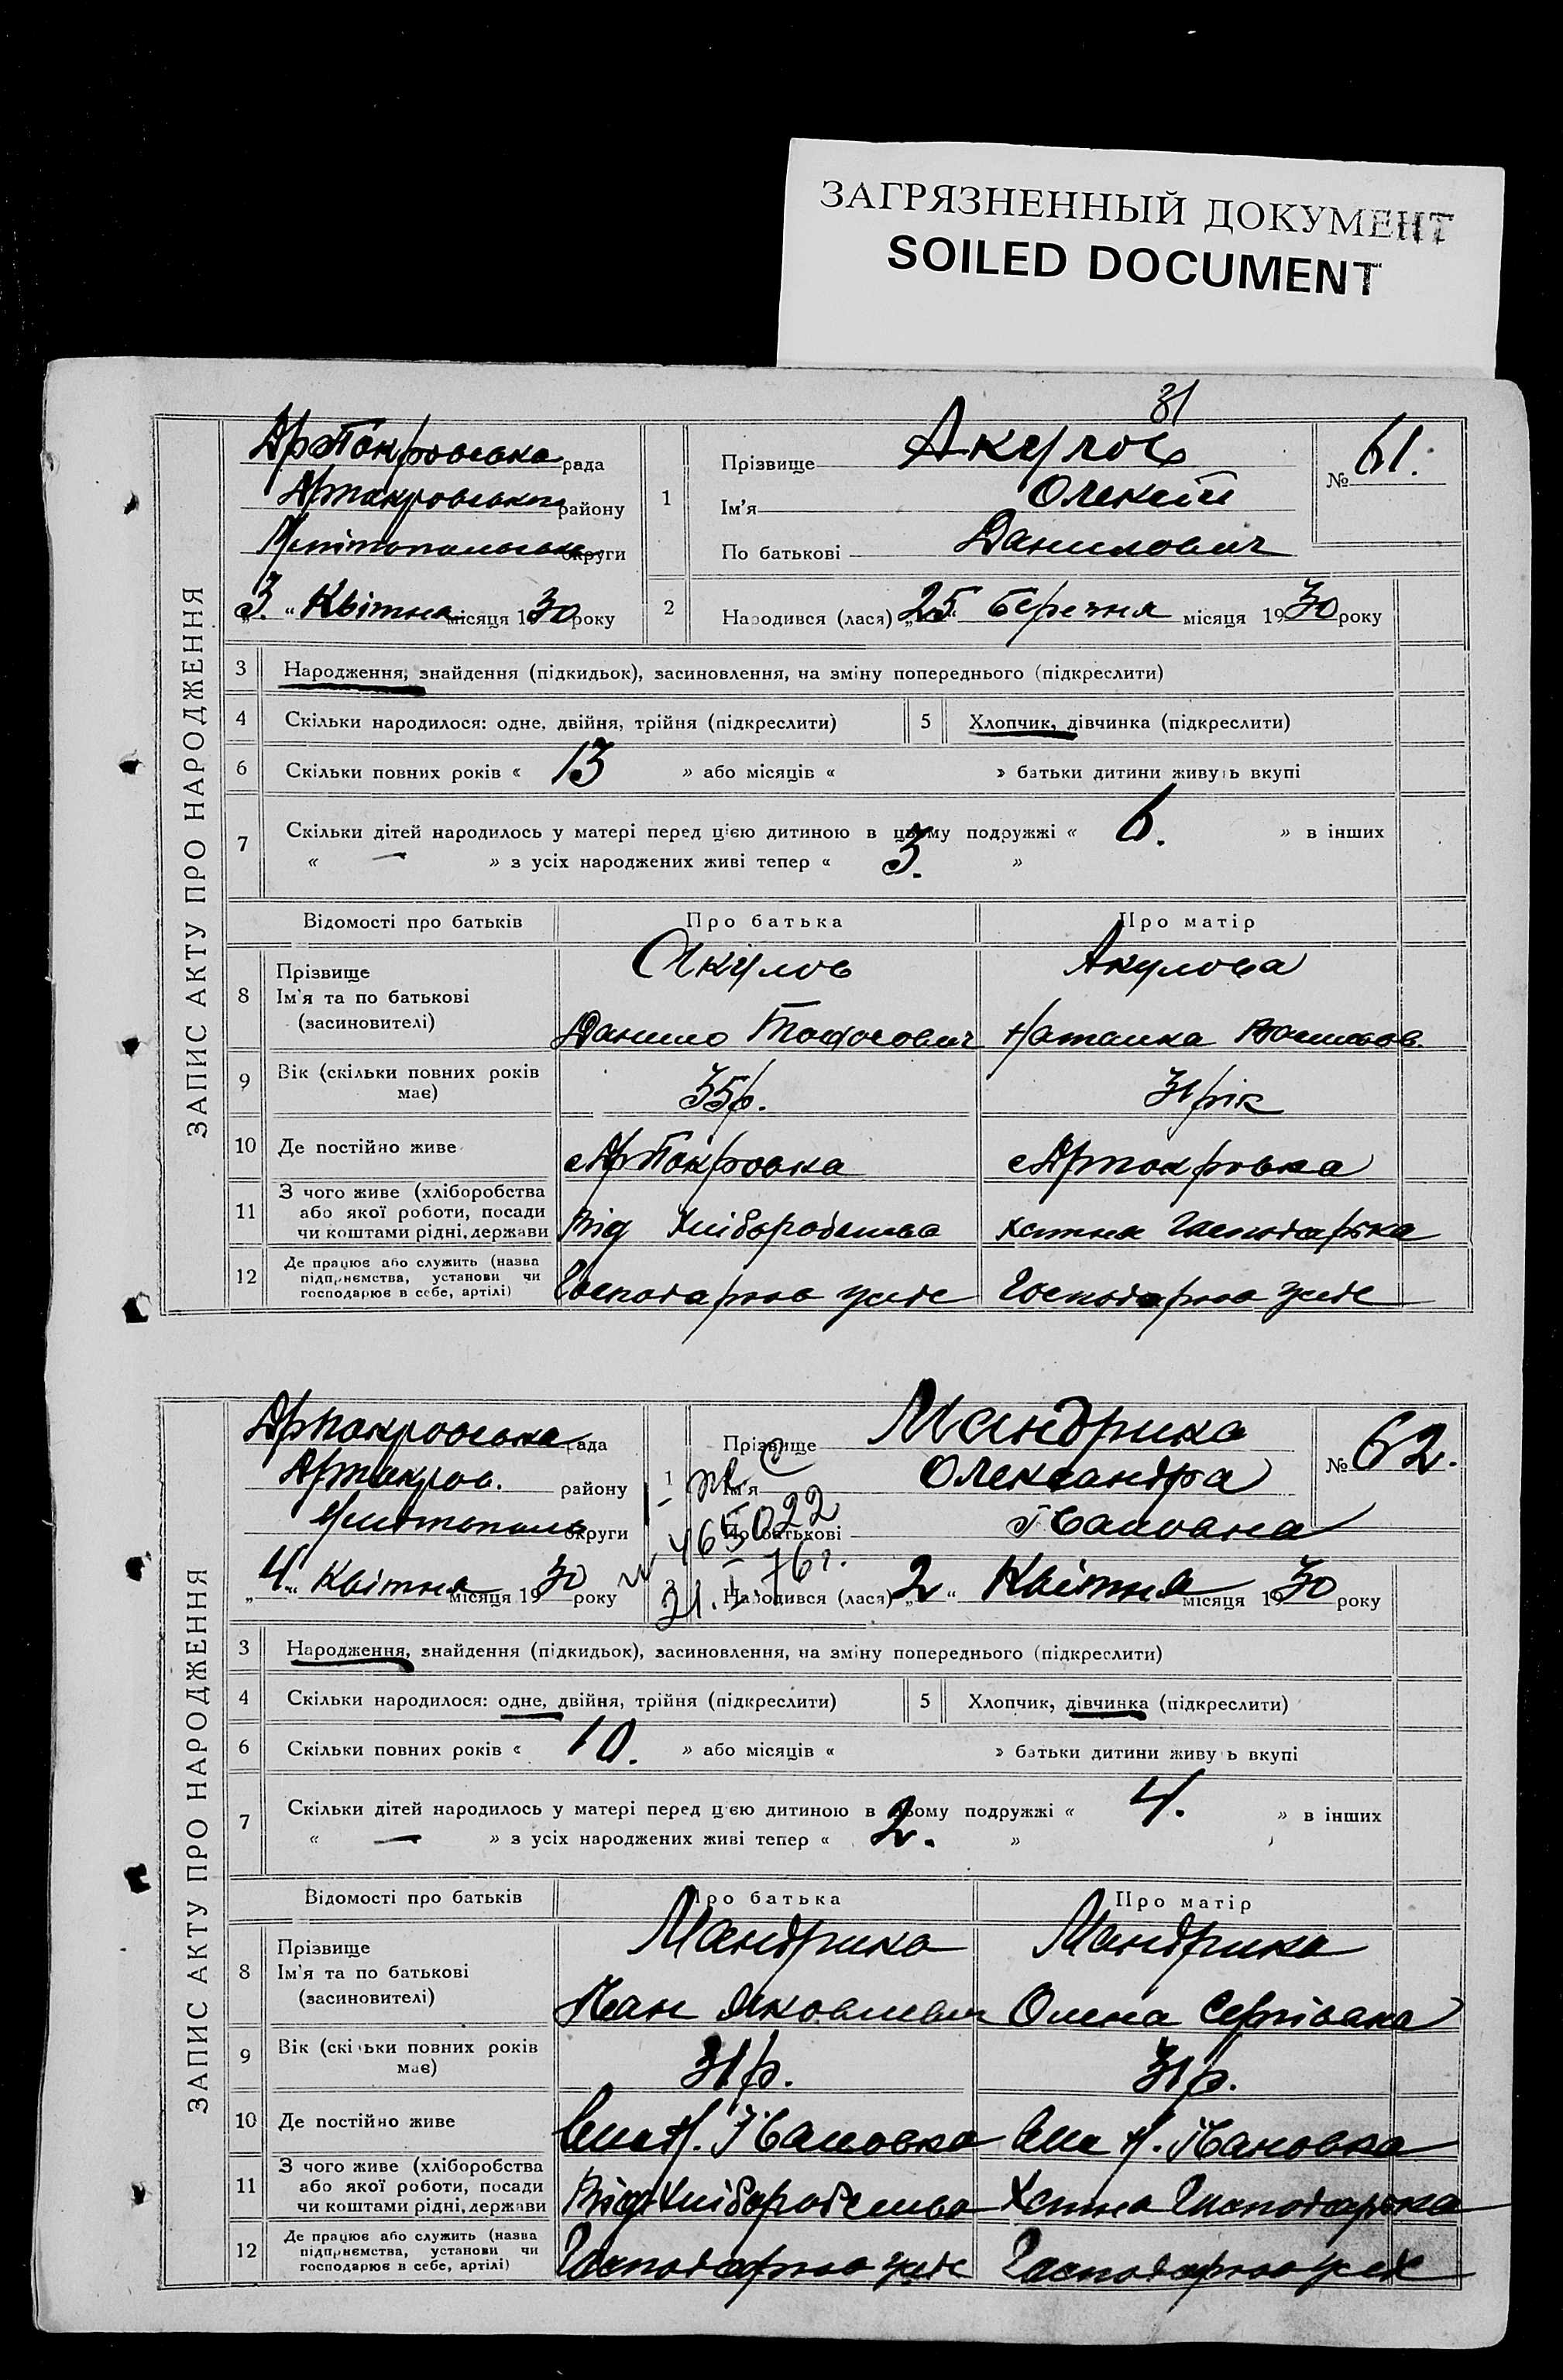 ЗАГРЯЗНЕННЫЙ ДОКУМЕНТ
SOILED DOCUMENT
31
ЗАПИС АКТУ ПРО НАРОДЖЕННЯ
АрПокровська рада
району
округи
„3.“ Квітня місяця 1930 року
1
Прізвище Акулов
Ім'я Олексій
По батькові Данилович
№ 61.
2
Народився (лася) „25“ березня місяця 1930 року
3 Народження, знайдення (підкидьок), засиновлення, на зміну попереднього (підкреслити)
4 Скільки народилося: одне, двійня, трійня (підкреслити)
5 Хлопчик, дівчинка (підкреслити)
6 Скільки повних років « 13 » або місяців « » батьки дитини живуть вкупі
7 Скільки дітей народилось у матері перед цією дитиною в цьому подружжі « 6. » в інших
« — » з усіх народжених живі тепер « 3. »
Відомості про батьків Про батька Про матір
8 Прізвище
Ім'я та по батькові
(засиновителі)
Акулов
Данило
Акулова
Наталка
9 Вік (скільки повних років
має)
35р.
31 рік
10 Де постійно живе АрПокровка Арпокровка
11 З чого живе (хліборобства
або якої роботи, посади
чи коштами рідні, держави
Від Хліборобства хатня Господарка
12 Де працює або служить (назва
підприємства, установи чи
господарює в себе, артілі)
Господарює у себе Господарює у себе
ЗАПИС АКТУ ПРО НАРОДЖЕННЯ
Арпокровська рада
Арпокров. району
округи
„4“ Квітня місяця 1930 року
1
Прізвище Мандрика
Ім'я Олександра
По батькові Івановна
№ 62.
465022
21. I 76 г.
2
Народився (лася) „2“ Квітня місяця 1930 року
3 Народження, знайдення (підкидьок), засиновлення, на зміну попереднього (підкреслити)
4 Скільки народилося: одне, двійня, трійня (підкреслити)
5 Хлопчик, дівчинка (підкреслити)
6 Скільки повних років « 10. » або місяців « » батьки дитини живуть вкупі
7 Скільки дітей народилось у матері перед цією дитиною в цьому подружжі « 4. » в інших
« — » з усіх народжених живі тепер « 2. »
Відомості про батьків Про батька Про матір
8 Прізвище
Ім'я та по батькові
(засиновителі)
Мандрика
Іван Яковлевич
Мандрика
Олена Сергіовна
9 Вік (скільки повних років
має)
31р.
31р.
10 Де постійно живе Івановка Івановка
11 З чого живе (хліборобства
або якої роботи, посади
чи коштами рідні, держави
Від Хліборобства Хатня Господарка
12 Де працює або служить (назва
підприємства, установи чи
господарює в себе, артілі)
Господарює у себе Господарює у себе